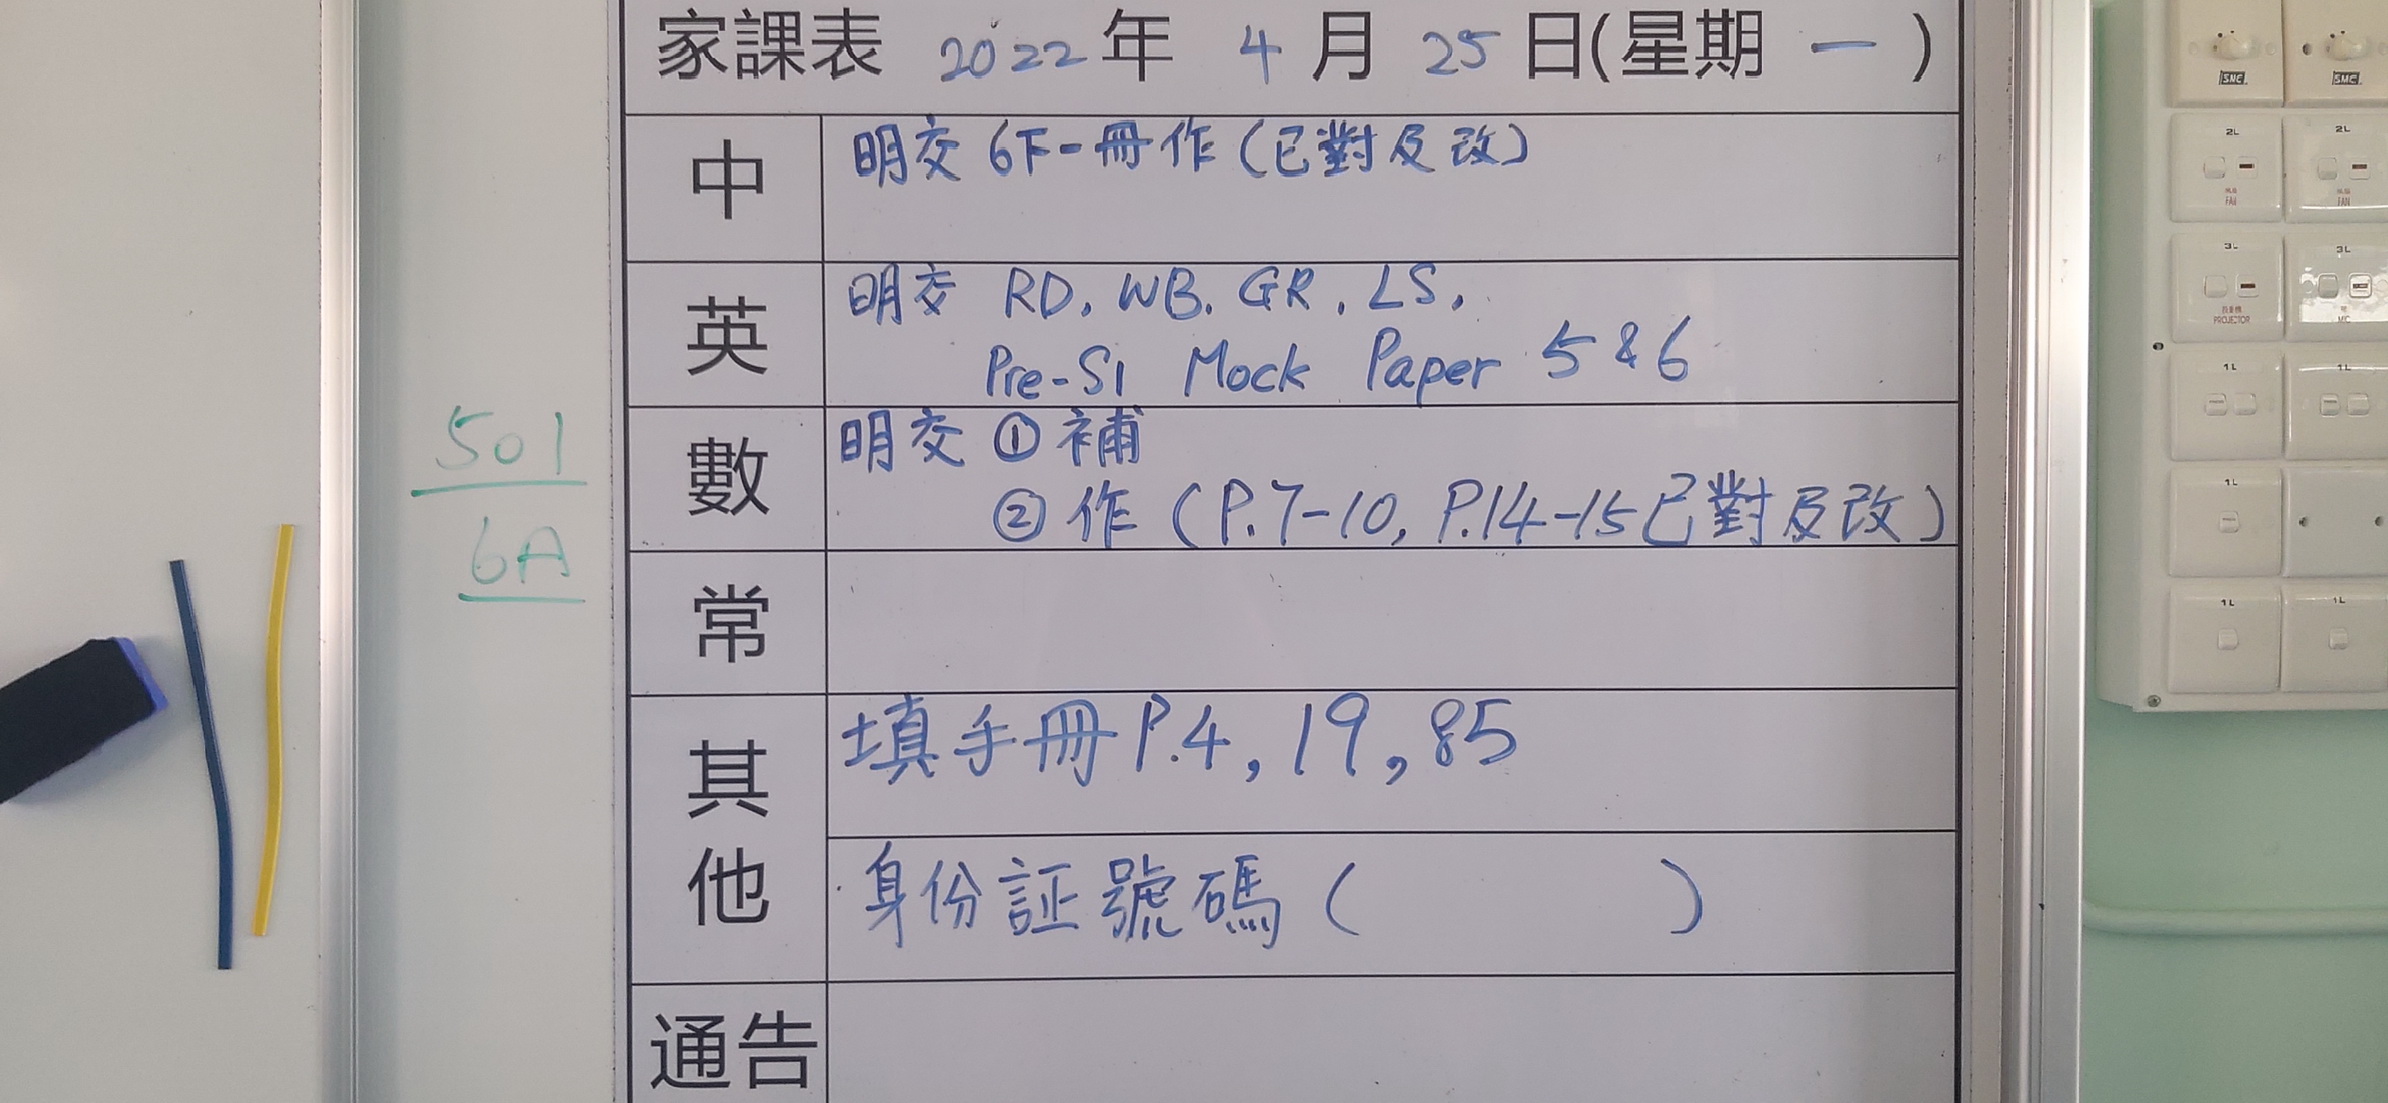 家課表 2022年 4月 25日(星期一)
中 明交 6下一冊作(已對及改)
英 明交 RD, WB, GR, LS,
Pre-S1 Mock Paper 5 & 6
數 明交 ①補
②作 (P.7-10, P.14-15已對及改)
常
其他 填手冊P.4, 19, 85
身份証號碼( )
通告
501
6A
SMC
SMC
2L
FAN
2L
FAN
3L
PROJECTOR
3L
MIC
1L
1L
1L
1L
1L